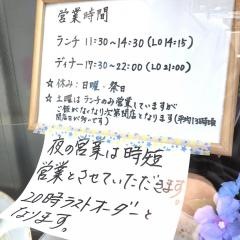 営業時間
ランチ 11:30~14:30 (LO 14:15)
ディナー 17:30~22:00 (LO 21:00)
☆ 休み:日曜・祭日
☆ 土曜はランチのみ営業していますが
ご飯がなくなり次第閉店となります(平均13時頃
閉店が多いです)
夜の営業は時短
営業とさせていただきます。
20時ラストオーダーと
なります。